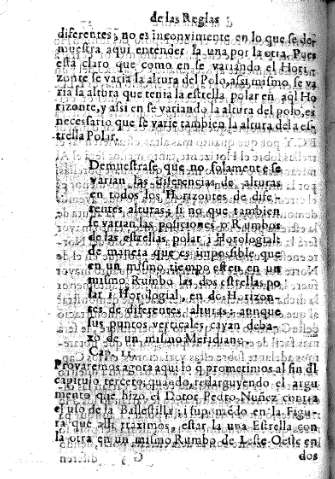 de las Reglas
diferentes; no es inconviniente en lo que se de-
muestra aqui entender la una por la otra. Pues
està claro que como en se variando el Hori-
zonte se varia la altura del Polo, assi mismo se va
ria la altura que tenia la estrella polar en aql Ho
rizonte, y assi en se variando la altura del polo, es
necessario que se varie tambien la altura de la es-
trella Polar.
Demuestrase, que no solamente se
varian las diferencias de alturas
en todos los Horizontes de dife-
rentes alturas; si no que tambien
se varian las posiciones, o Rumbos
de las estrellas polar, i Horologial:
de maneta que es imposible que
en un mismo tiempo esten en un
mismo Rumbo las dos estrellas po
lar i Horologial, en dos Horizon-
tes de diferentes alturas: aunque
sus puntos verticales cayan deba-
xo de un mismo Meridiano.
Cap.
Provaremos agora aqui lo q̃ prometimos al fin dl
capitulo tercero, quando redarguyendo el argu
mento que hizo el Dotor Pedro Nuñez contra
el uso de la Ballestilla; i suponiẽdo en la Figu-
ra que alli traximos, estar la una Estrella con
la otra en un mismo Rumbo de Leste Oeste en
dos